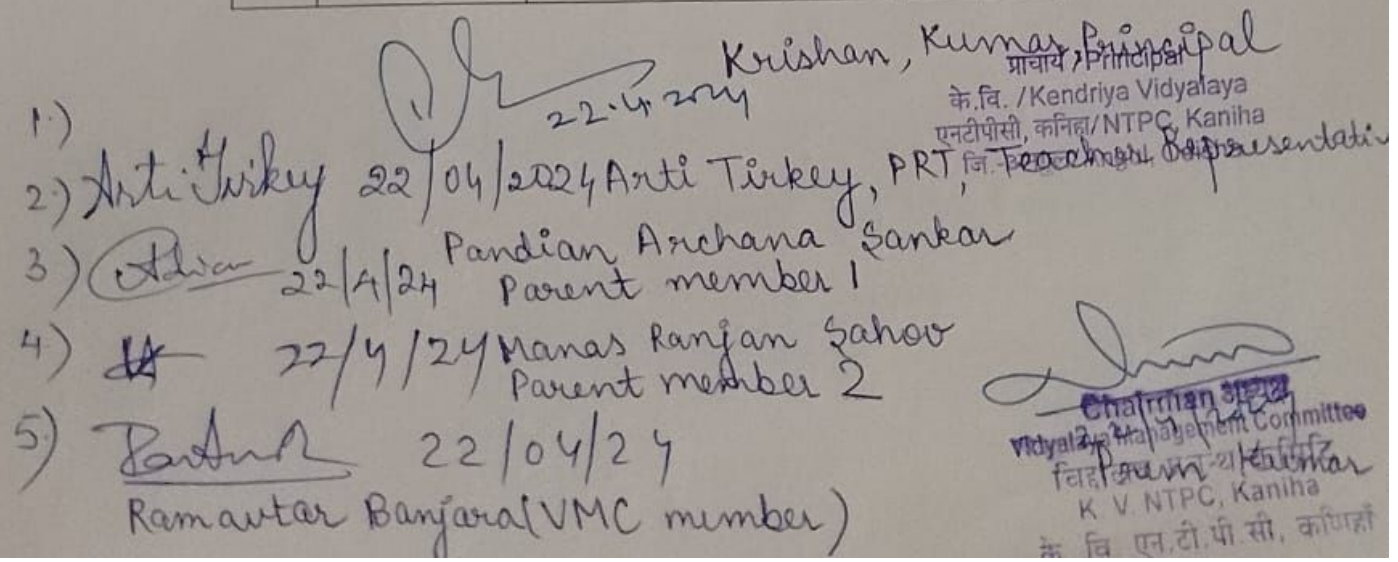 1.) 22.4.2024 Krishan, Kumar, Principal
प्राचार्य / Principal
के.वि. / Kendriya Vidyalaya
एनटीपीसी, कनिहा/NTPC, Kaniha
2.) Arti Tirkey 22/04/2024 Arti Tirkey, PRT, Teacher Representativ
3) 22/4/24 Pandian Archana Sankar
Parent member 1
4) 22/4/24 Manas Ranjan Sahoo
Parent member 2
5) 22/04/24
Ramavtar Banjara (VMC member)
Chairman अध्यक्ष
Vidyalaya Management Committee
Kumar
K V NTPC, Kaniha
के वि एन.टी.पी.सी, कणिहाँ